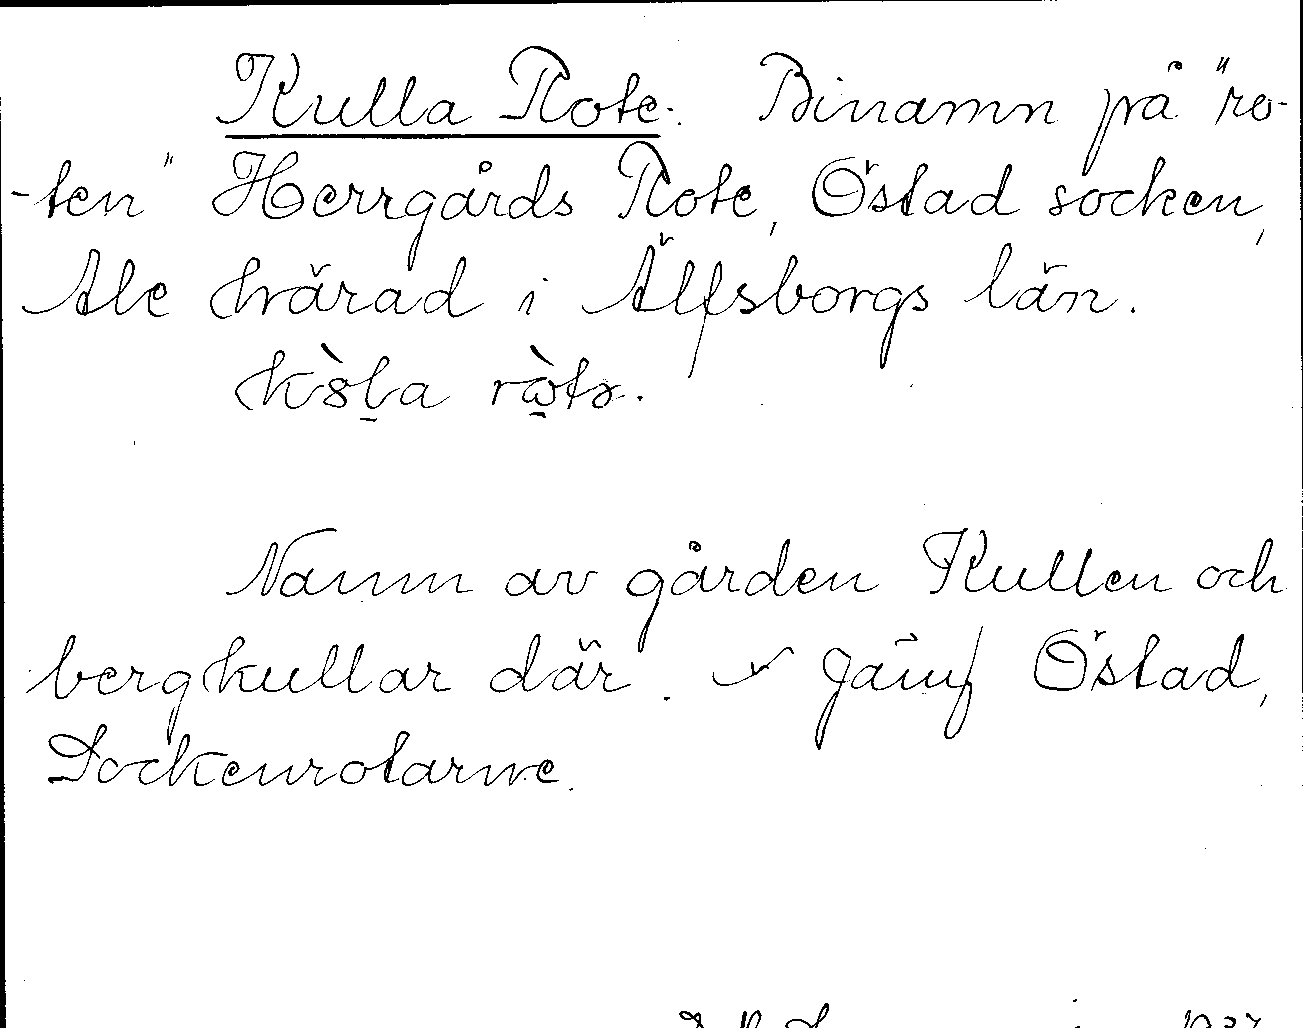 Kulla Rote. Binamn på "ro-
-ten" Herrgårds Rote, Östad socken,
Ale härad i Älfsborgs län.
Namn av gården Kullen och
bergkullar där. Jämf Östad,
Sockenrotarne.